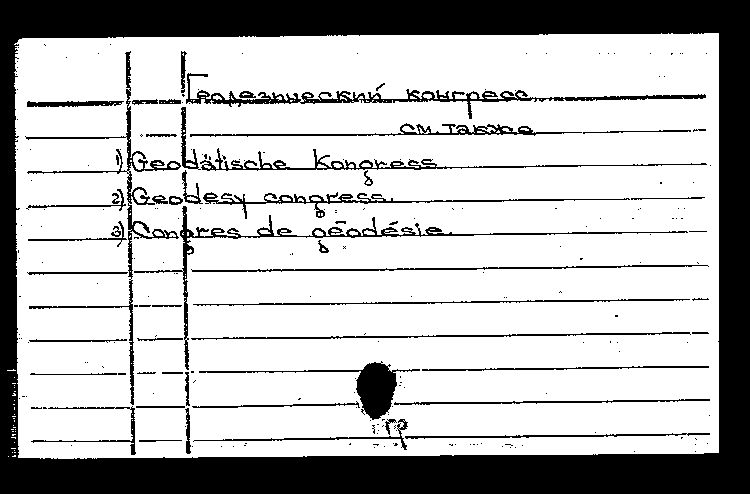 Геодезический конгресс
см. также
1) Geodätische Kongress
2) Geodesy congress.
3) Congres de géodésie.